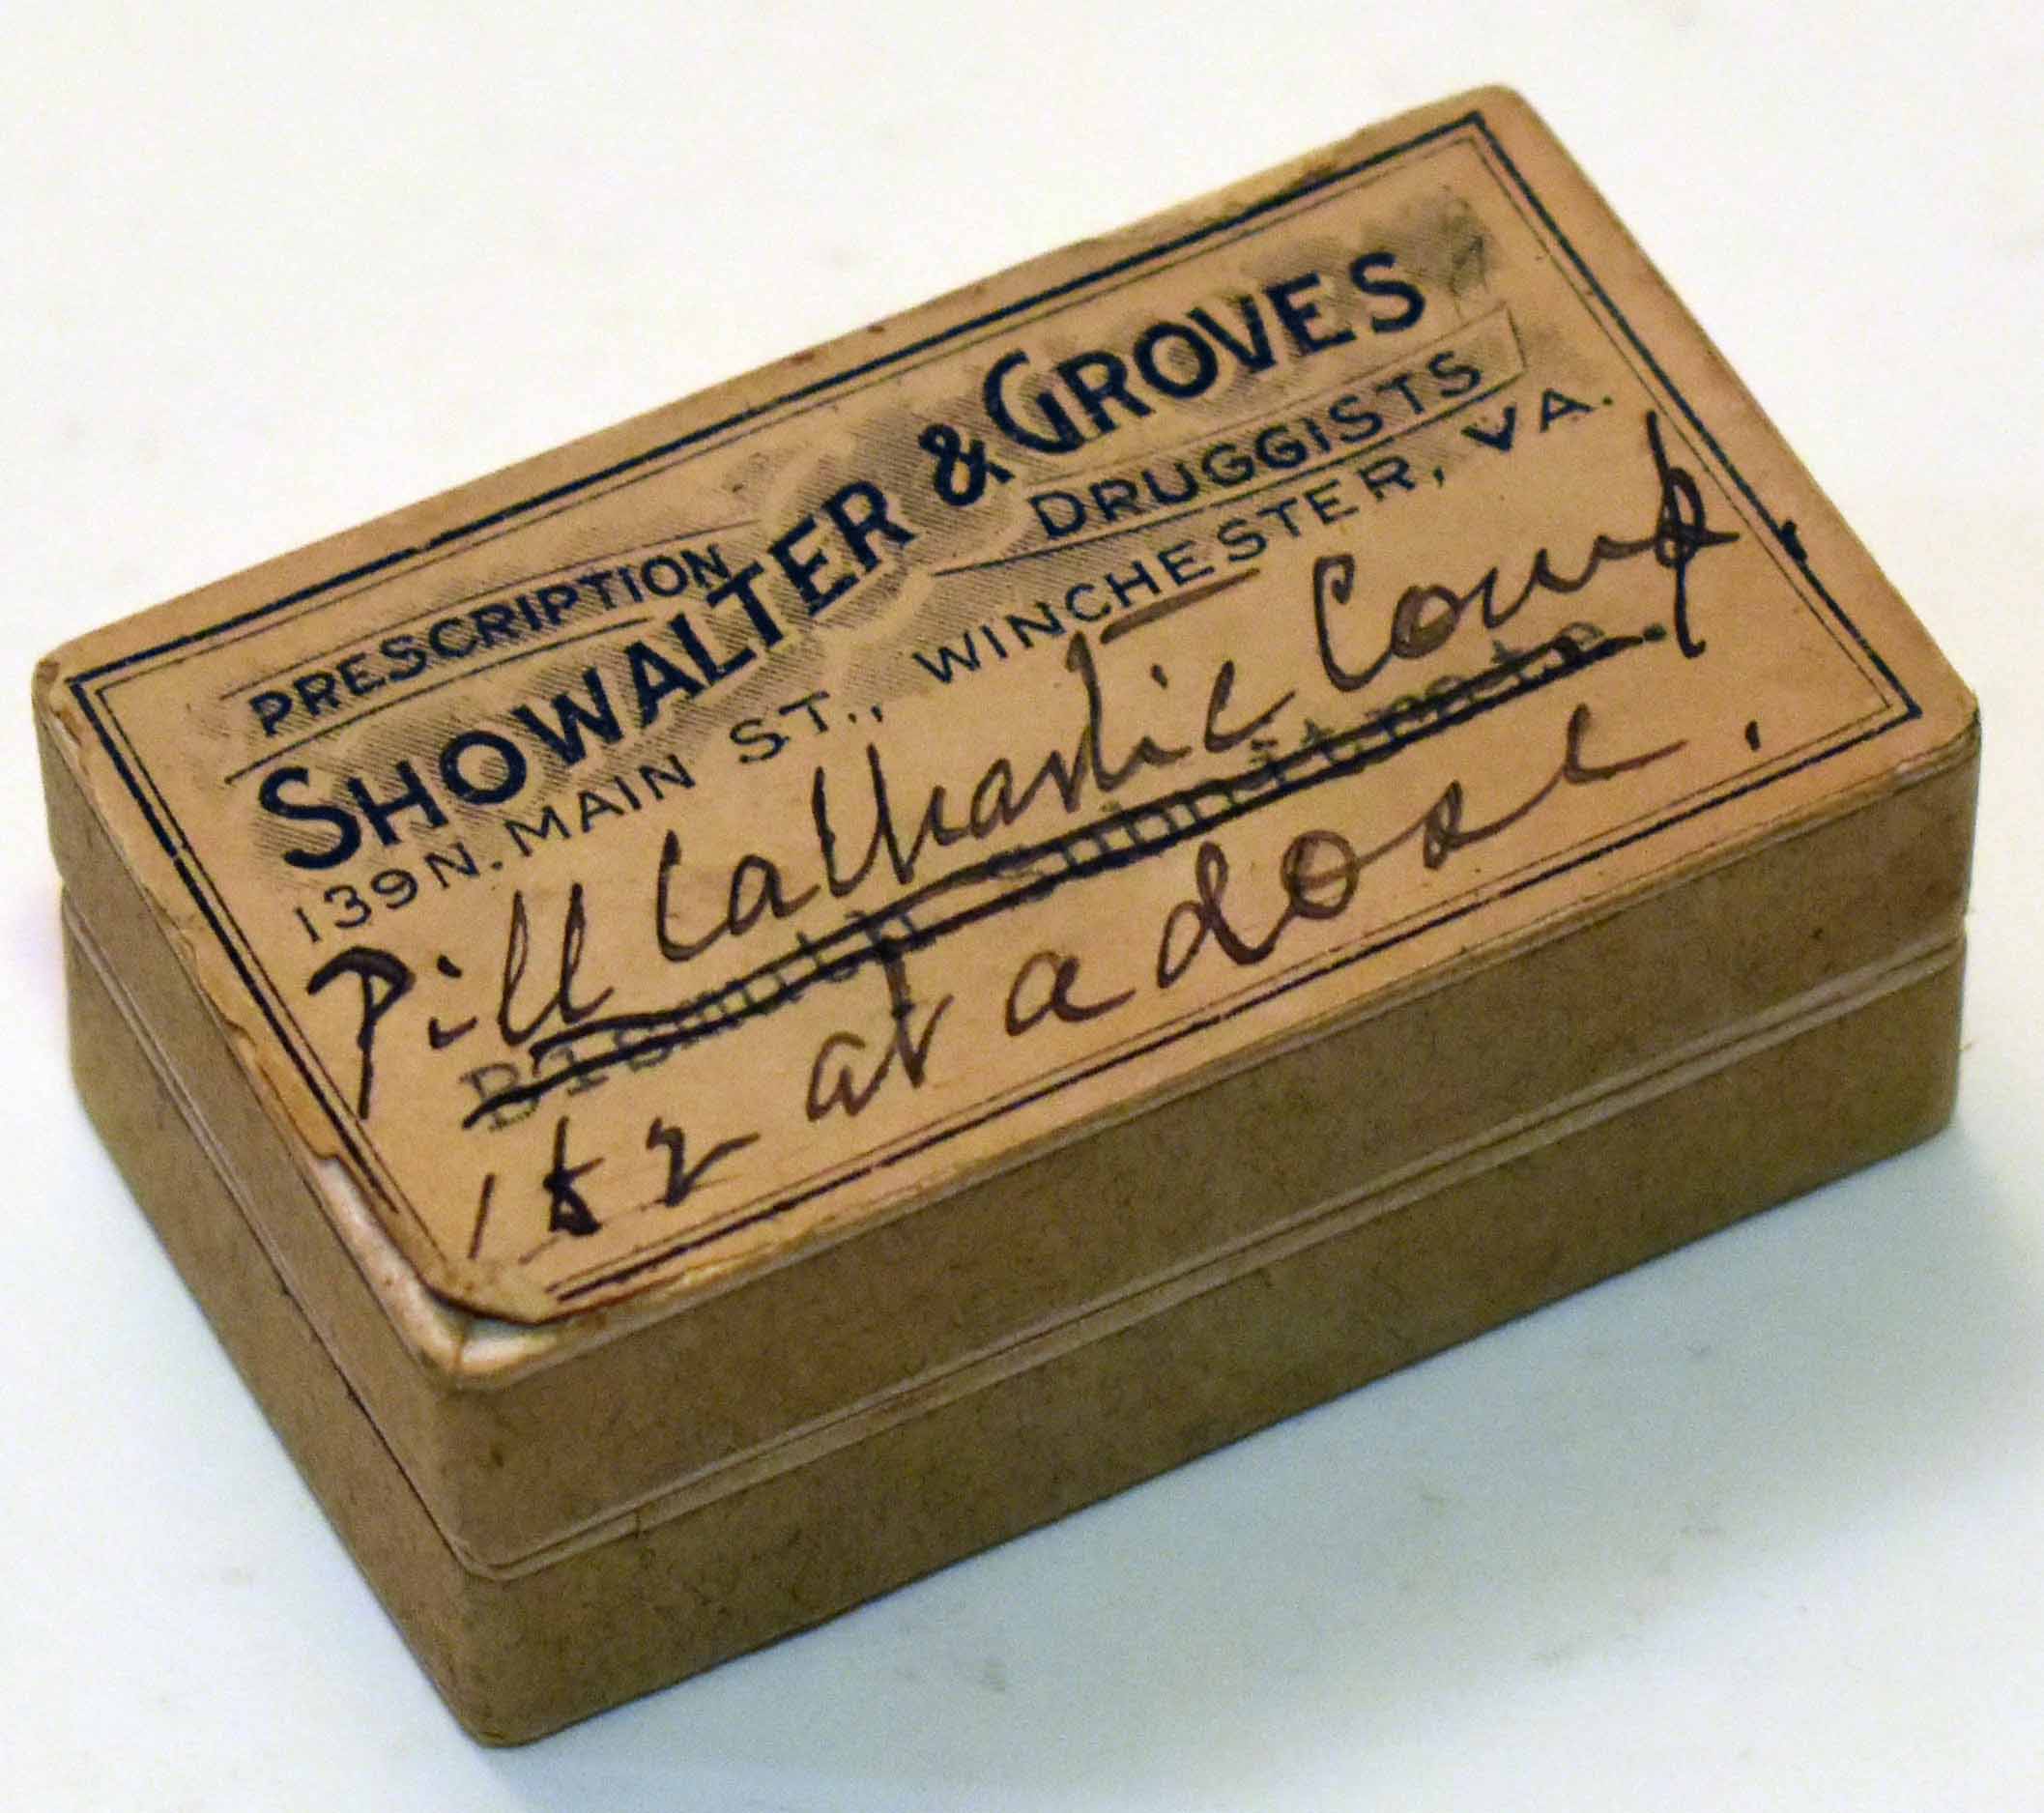 PRESCRIPTION
SHOWALTER & GROVES
DRUGGISTS
139 N. MAIN ST., WINCHESTER, VA.
Pill Cathartic Comp.
Bismuth Subnitrate.
1 to 2 at a dose.